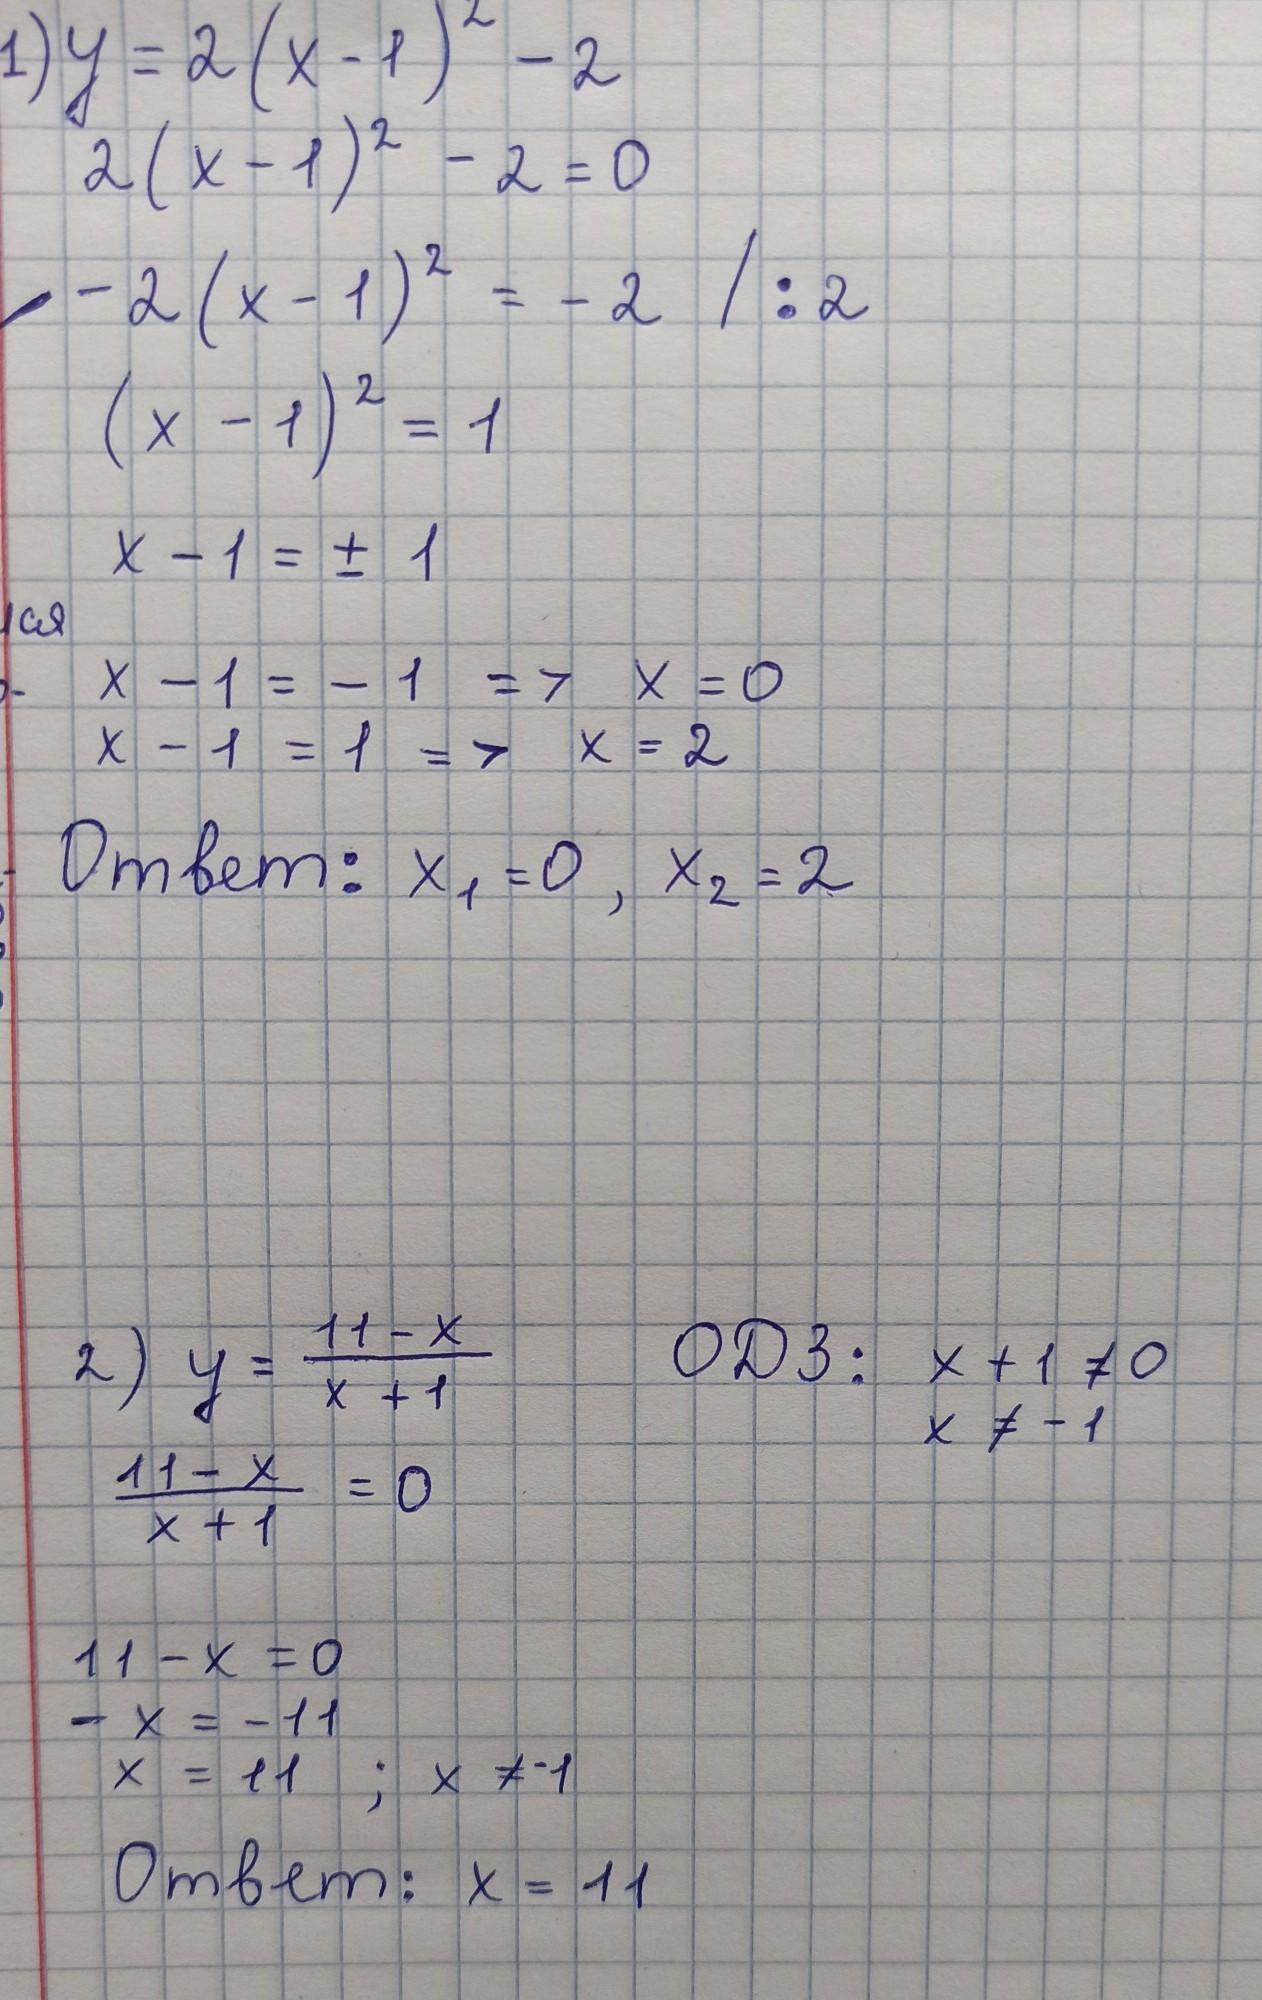 1) y = 2(x-1)² - 2
2(x-1)² - 2 = 0
-2(x-1)² = -2 / : 2
(x-1)² = 1
x - 1 = ± 1
x - 1 = -1 => x = 0
x - 1 = 1 => x = 2
Ответ: x₁ = 0, x₂ = 2
2) y = (11-x)/(x+1) ОДЗ: x + 1 ≠ 0
x ≠ -1
(11-x)/(x+1) = 0
11 - x = 0
- x = -11
x = 11 ; x ≠ -1
Ответ: x = 11